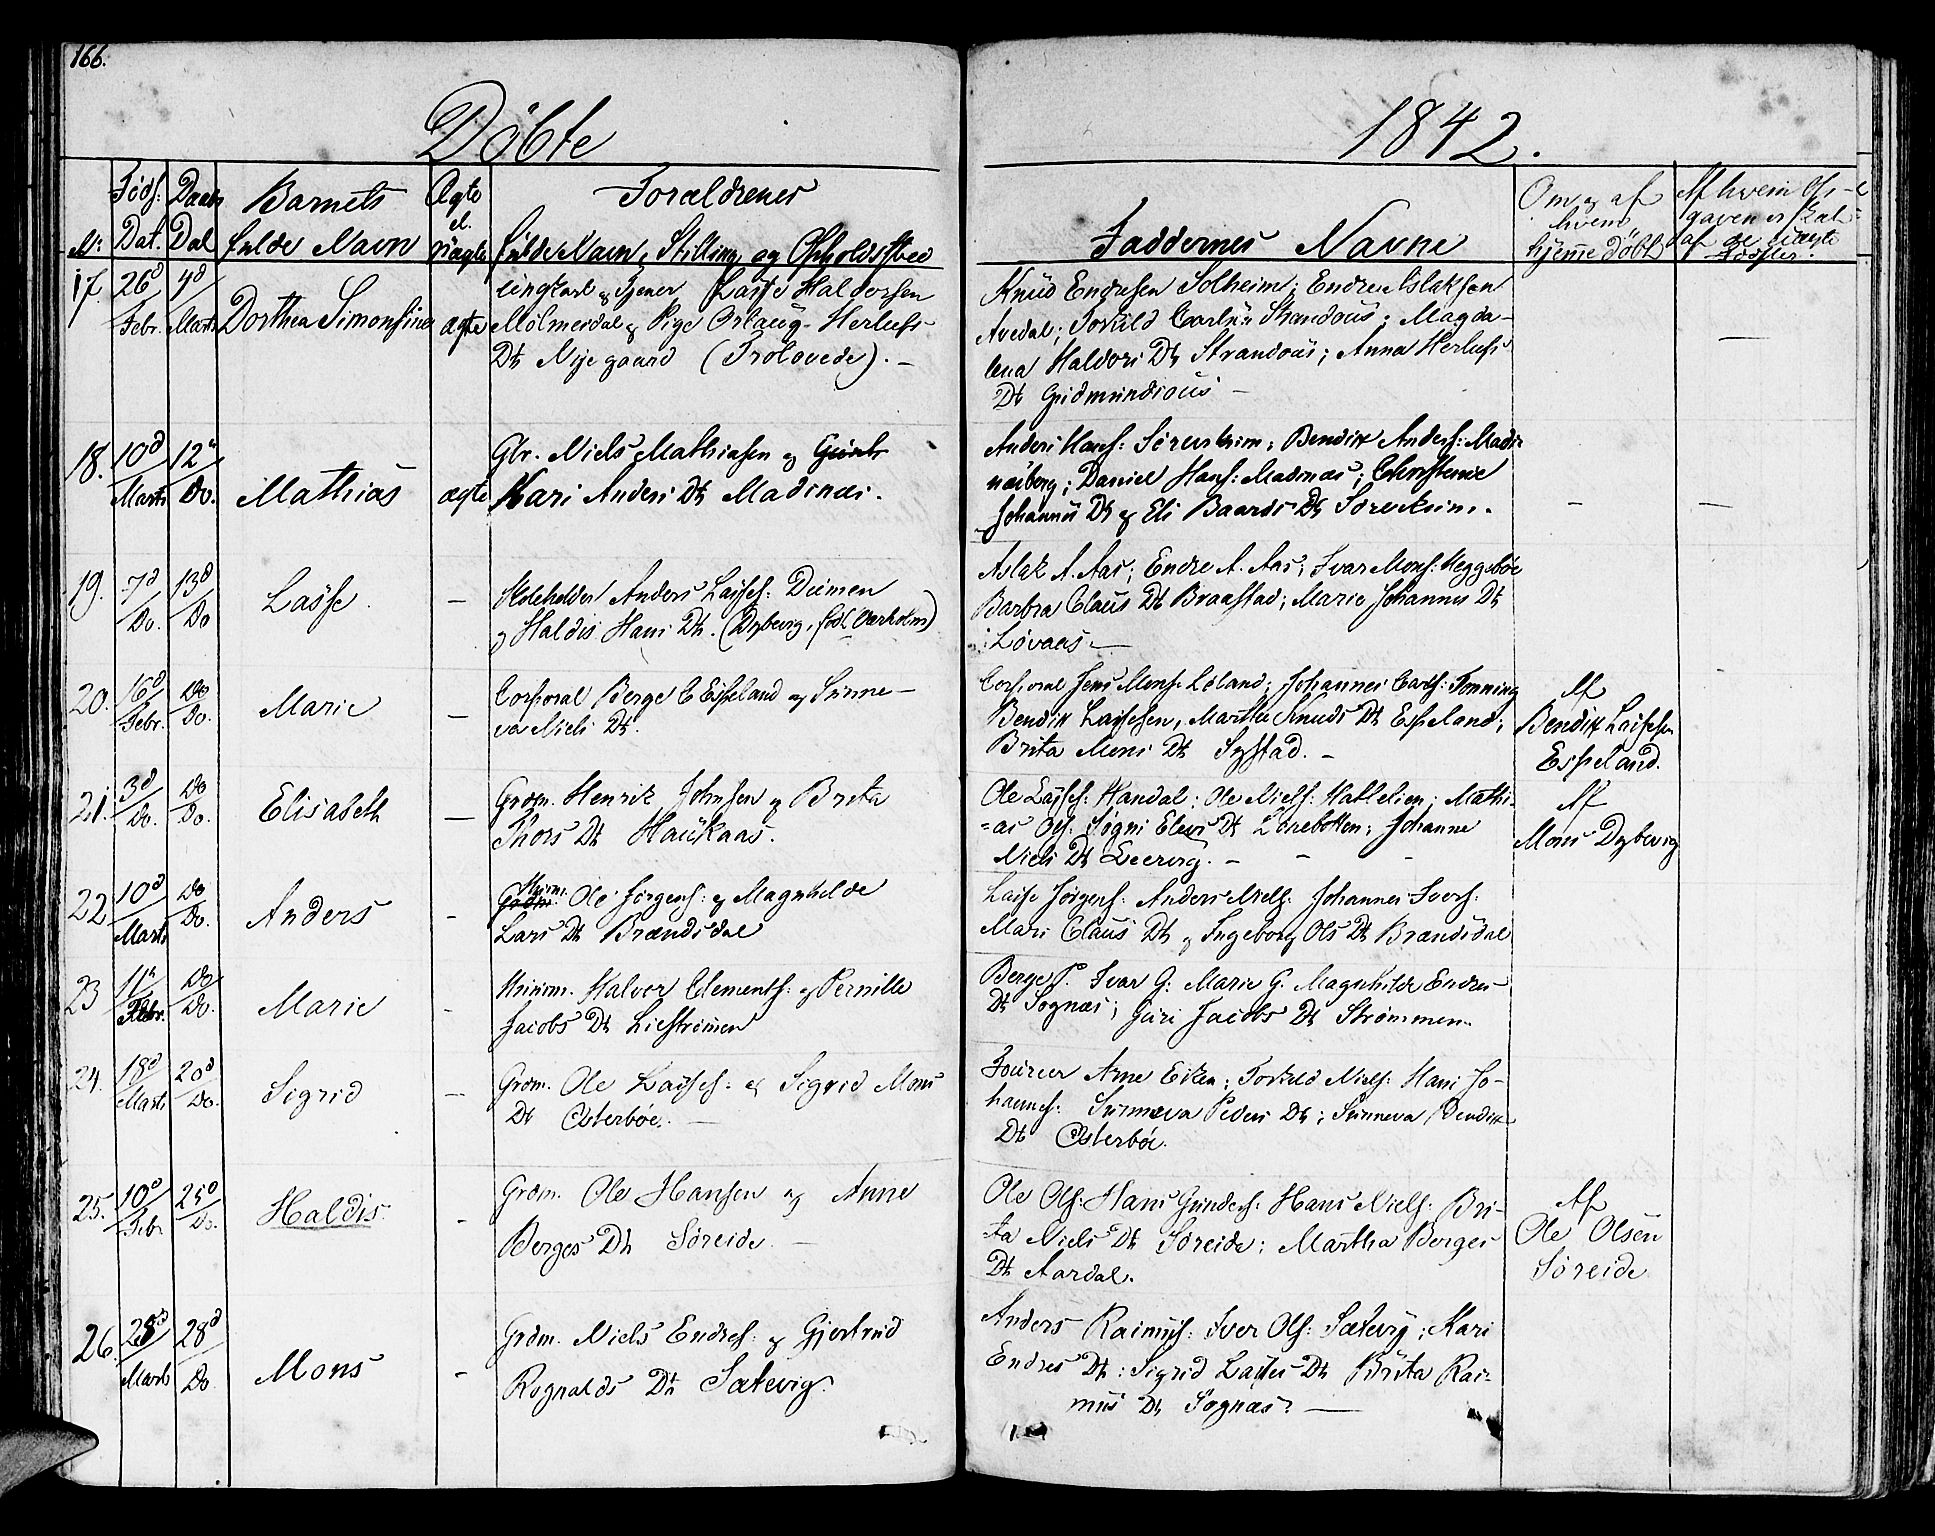 166.
Döbte
1842.
No Föds: Dat. Daabs Dat Barnets fulde Navn Ægte el. Uægte Forældrenes fulde Navn, Stilling og Opholdssted
Faddernes Navne
Om og af hvem hjemme döbt
Af hvem
17. 26d Febr. 7d Marts Dorthea Simonsine ægte Ungkarl og Tjener Lasse Haldorsen
Mølmesdal og Pige Orlaug Herlufs
Dtr Nyegaard (Trolovede). –
Knud Endresen Solheim; Endre Aslaksen
Avedal; Torkild Carlsen Strandous; Magda-
lena Haldors Dtr Strandous; Anna Herlufs
Dtr Gudmundsous –
18. 10d Marts 12te Do. Mathias ægte Gbr. Niels Mathiasen og
Kari Anders Dtr Madsnæs.
Anders Hans: Søreseim; Bendix Anders: Mads-
næsberg; Daniel Hans: Madsnæs; Christense
Johannes Dtr og Eli Baards Dtr Søreseim.
19. 7d Do. 13d Do Lasse – Skoleholder Anders Lasses: Diemen
og Haldis Hans Dtr. (Dybevig, föd Værholm)
Aslak A. Aas; Endre A. Aas; Ivar Mons: Heggebøe
Barbra Claus Dtr Braastad; Marie Johannes Dtr
Løvaas –
20. 16d Febr. Do Do. Marie – Corporal Berge C Espeland og Sünne-
va Niels Dtr.
Corporal Jens Mons: Løland; Johannes Carls: Tonning
Bendix Lassesen, Martha Knuds Dtr Espeland;
Brita Mons Dtr Systad. –
Af
Bendix Lassesen
Espeland.
21. 3d Do. Do Do. Elisabeth – Grdm. Henrik Johnsen og Brita
Thors Dtr Haukaas.
Ole Lasses: Handal; Ole Niels: Hatlelien; Mathi-
as Ols: Søgni Elevs Dtr Leirebotten; Johanne
Niels Dtr Leervig. – – –
Af
Mons Dybevig
22 10d Marts Do Do. Anders – Huusm. Grdm. Ole Jørgens: og Magnhilde
Lars Dtr Brændsdal
Lasse Jørgens: Anders Niels: Johannes Ivers:
Mari Claus Dtr og Ingeborg Ols Dtr Brændsdal
23 11te Febr. Do Do. Marie – Huusm. Halvor Clements: og Pernille
Jacobs Dtr Liestrømen
Berge P. Ivar G: Marie G. Magnhilde Endres
Dtr Sognæs; Guri Jacobs Dtr Strømmen.
24. 18d Marts 20d Do. Sigrid – Grdm. Ole Lasses: og Sigrid Mons
Dtr Østerbøe. –
Fourier Arne Eiken; Torkild Niels: Hans Jo-
hannes: Sünneva Peders Dtr; Sünneva Bendix
Dtr Østerbøe.
25. 10d Febr 25d Do. Haldis. – Grdm. Ole Hansen og Anne
Berges Dtr Søreide –
Ole Ols: Hans Gunders: Hans Niels: Bri-
ta Niels Dtr Søreide; Martha Berges
Dtr Aardal.
Af
Ole Olsen
Søreide
26. 23d Marts 28d Do Mons – Grdm. Niels Endres: og Gjertrud
Rognalds Dtr Sætevig.
Anders Rasmus: Iver Ols: Sætevig; Kari
Endres Dtr; Sigrid Lasses Dtr Brita Ras-
mus Dtr Sognæs. –